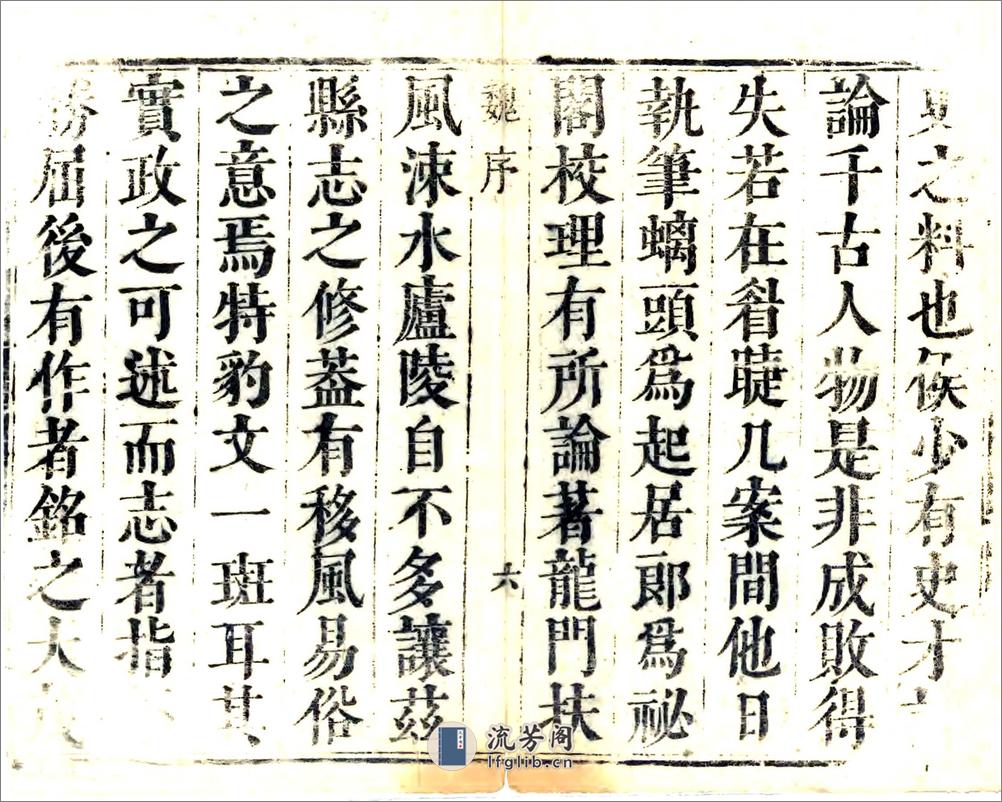 之料也侯少有史才
論千古人物是非成敗得
失若在睂睫几案間他日
執筆螭頭爲起居郎爲祕
閣校理有所論著龍門扶
魏序 六
風涑水廬陵自不多讓茲
縣志之修葢有移風易俗
之意焉特豹文一班耳其
實政之可述而志者指
勝屈後有作者銘之大
流芳阁
lfglib.cn